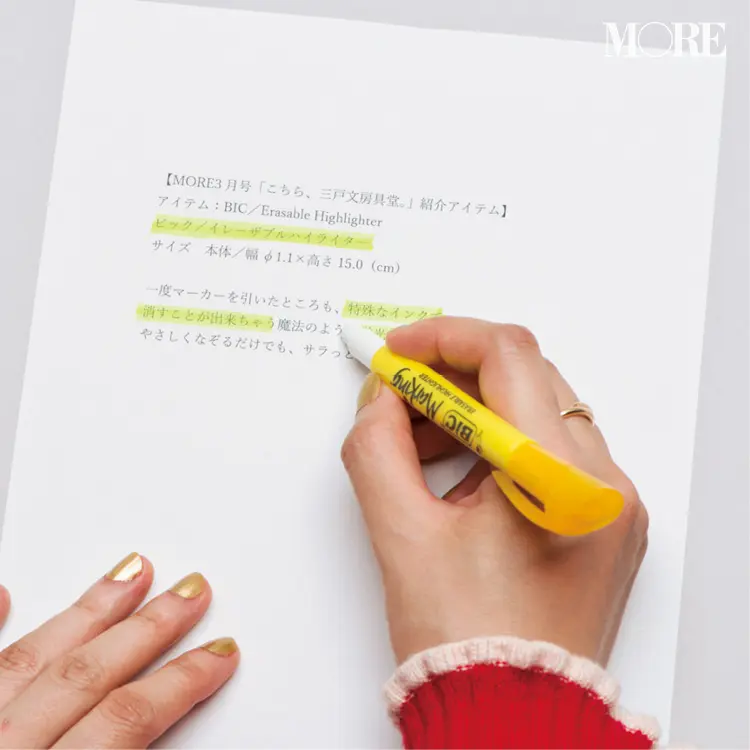 MORE
【MORE3月号「こちら、三戸文房具堂。」紹介アイテム】
アイテム：BIC／Erasable Highlighter
ビック／イレーザブルハイライター
サイズ　本体／幅φ1.1×高さ15.0（cm）
一度マーカーを引いたところも、特殊なインクで
消すことが出来ちゃう魔法のよう
やさしくなぞるだけでも、サラっと
BIC Marking
ERASABLE HIGHLIGHTER